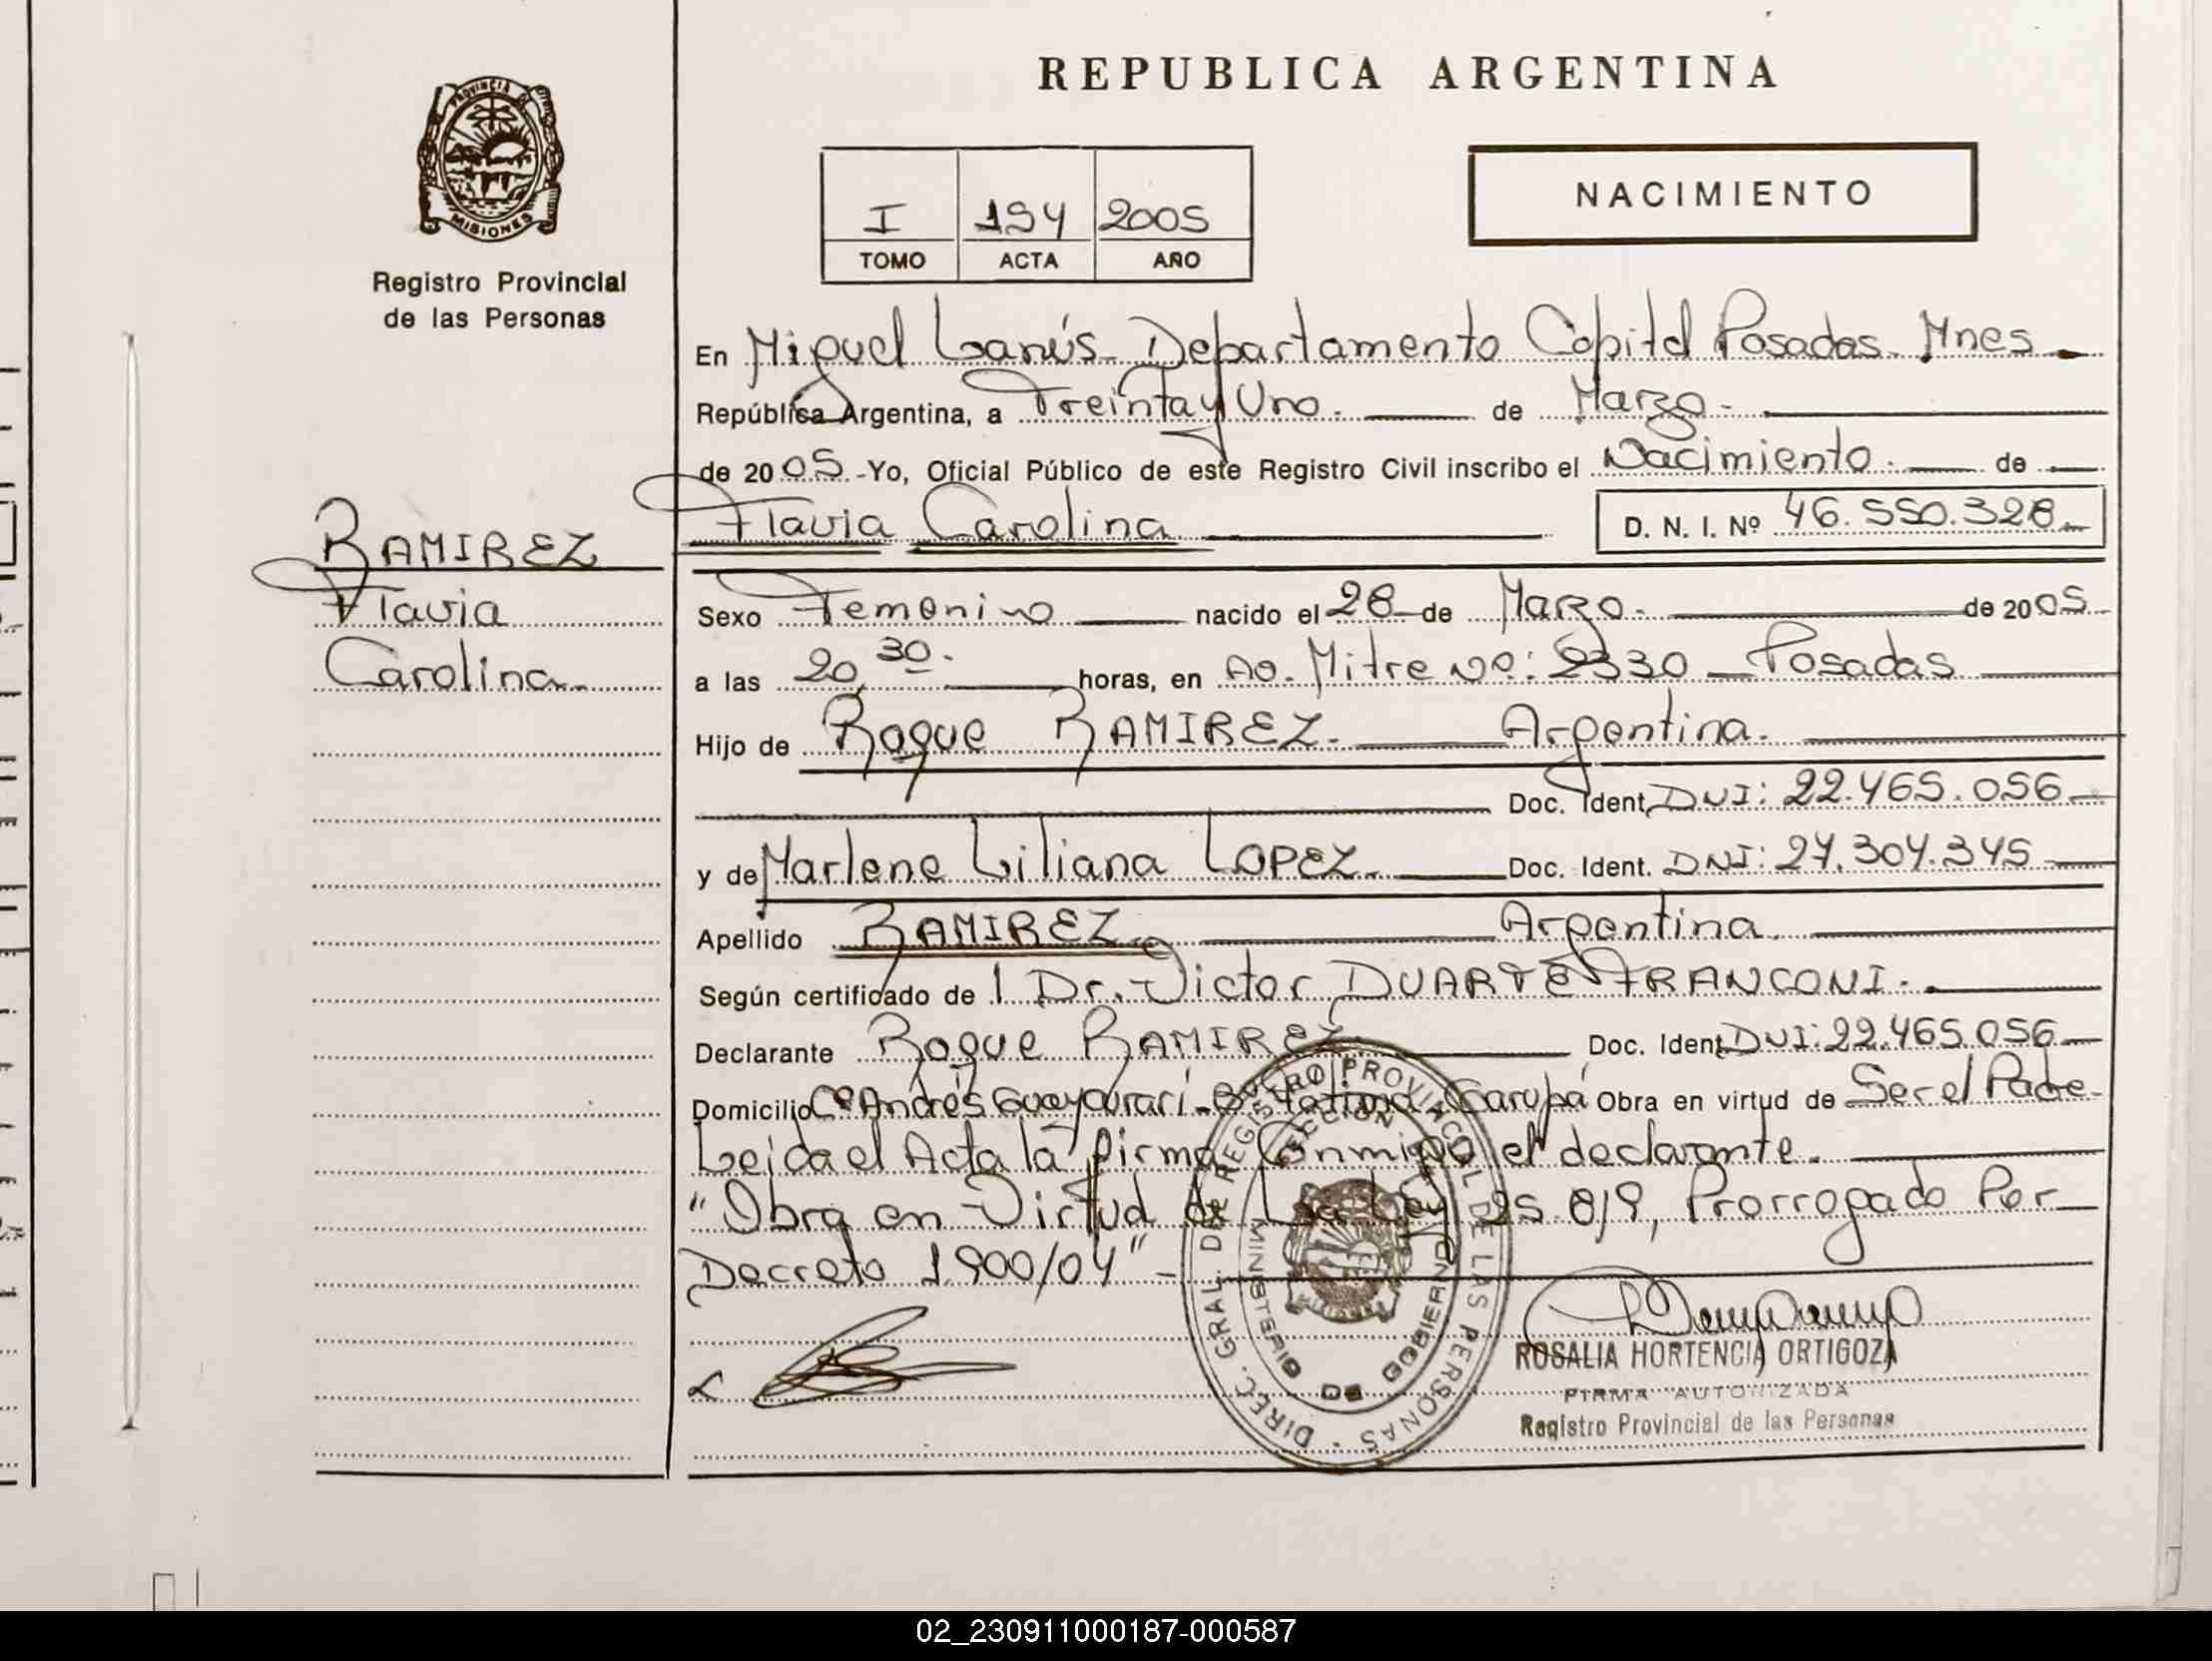 REPUBLICA ARGENTINA
PROVINCIA DE
MISIONES
Registro Provincial
de las Personas
NACIMIENTO
I 194 2005
TOMO ACTA AÑO
En Miguel Lanús Departamento Capital Posadas Mnes
República Argentina, a Treinta y Uno. de Marzo.
de 2005 - Yo, Oficial Público de este Registro Civil inscribo el Nacimiento. de
Flavia Carolina
D. N. I. Nº 46.550.328
RAMIREZ
Flavia
Carolina
Sexo Femenino nacido el 28 de Marzo. de 2005
a las 20,30. horas, en Av. Mitre Nº: 2330 Posadas
Hijo de Roque RAMIREZ. Argentina.
Doc. Ident. DNI: 22.465.056
y de Marlene Liliana LOPEZ. Doc. Ident. DNI: 27.304.345
Apellido RAMIREZ Argentina.
Según certificado de Dr. Victor DUARTE FRANCONI.
Declarante Roque RAMIREZ Doc. Ident. DNI: 22.465.056
Domicilio Cº Andrés Guaycurarí Garupá Obra en virtud de Ser el Padre
Leida el Acta la firma Conmigo el declarante.
"Obra en Virtud de La Ley 25.819, Prorrogado Por
Decreto 1.900/04" -
DIREC. GRAL. DE REGISTRO PROVINCIAL DE LAS PERSONAS
MINISTERIO DE GOBIERNO
ROSALIA HORTENCIA ORTIGOZA
FIRMA AUTORIZADA
Registro Provincial de las Personas
02_230911000187-000587